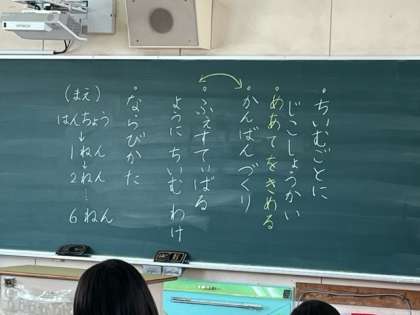 ・ちいむごとに
じこしょうかい
・めあてをきめる
・かんばんづくり
・ふぇすてぃばる
ようにちいむわけ
・ならびかた
(まえ)
はんちょう
↓
1ねん
↓
2ねん
⋮
6ねん